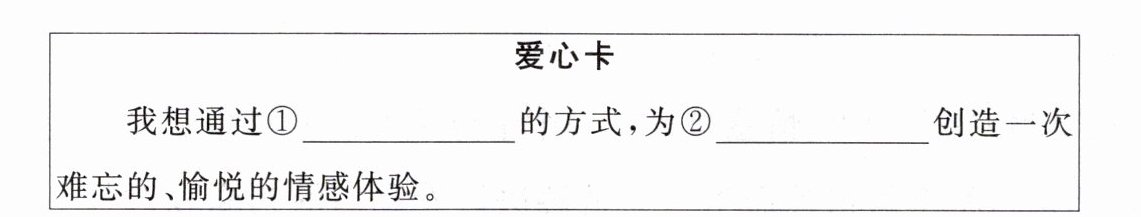 爱心卡
我想通过①____________的方式,为②____________创造一次
难忘的、愉悦的情感体验。